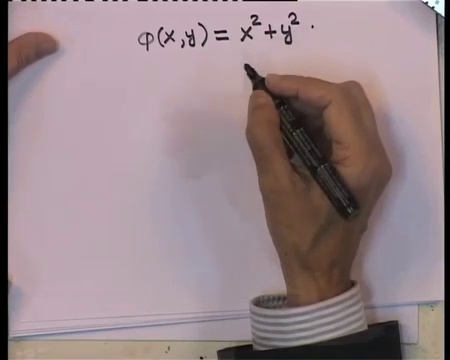 φ(x,y) = x² + y².